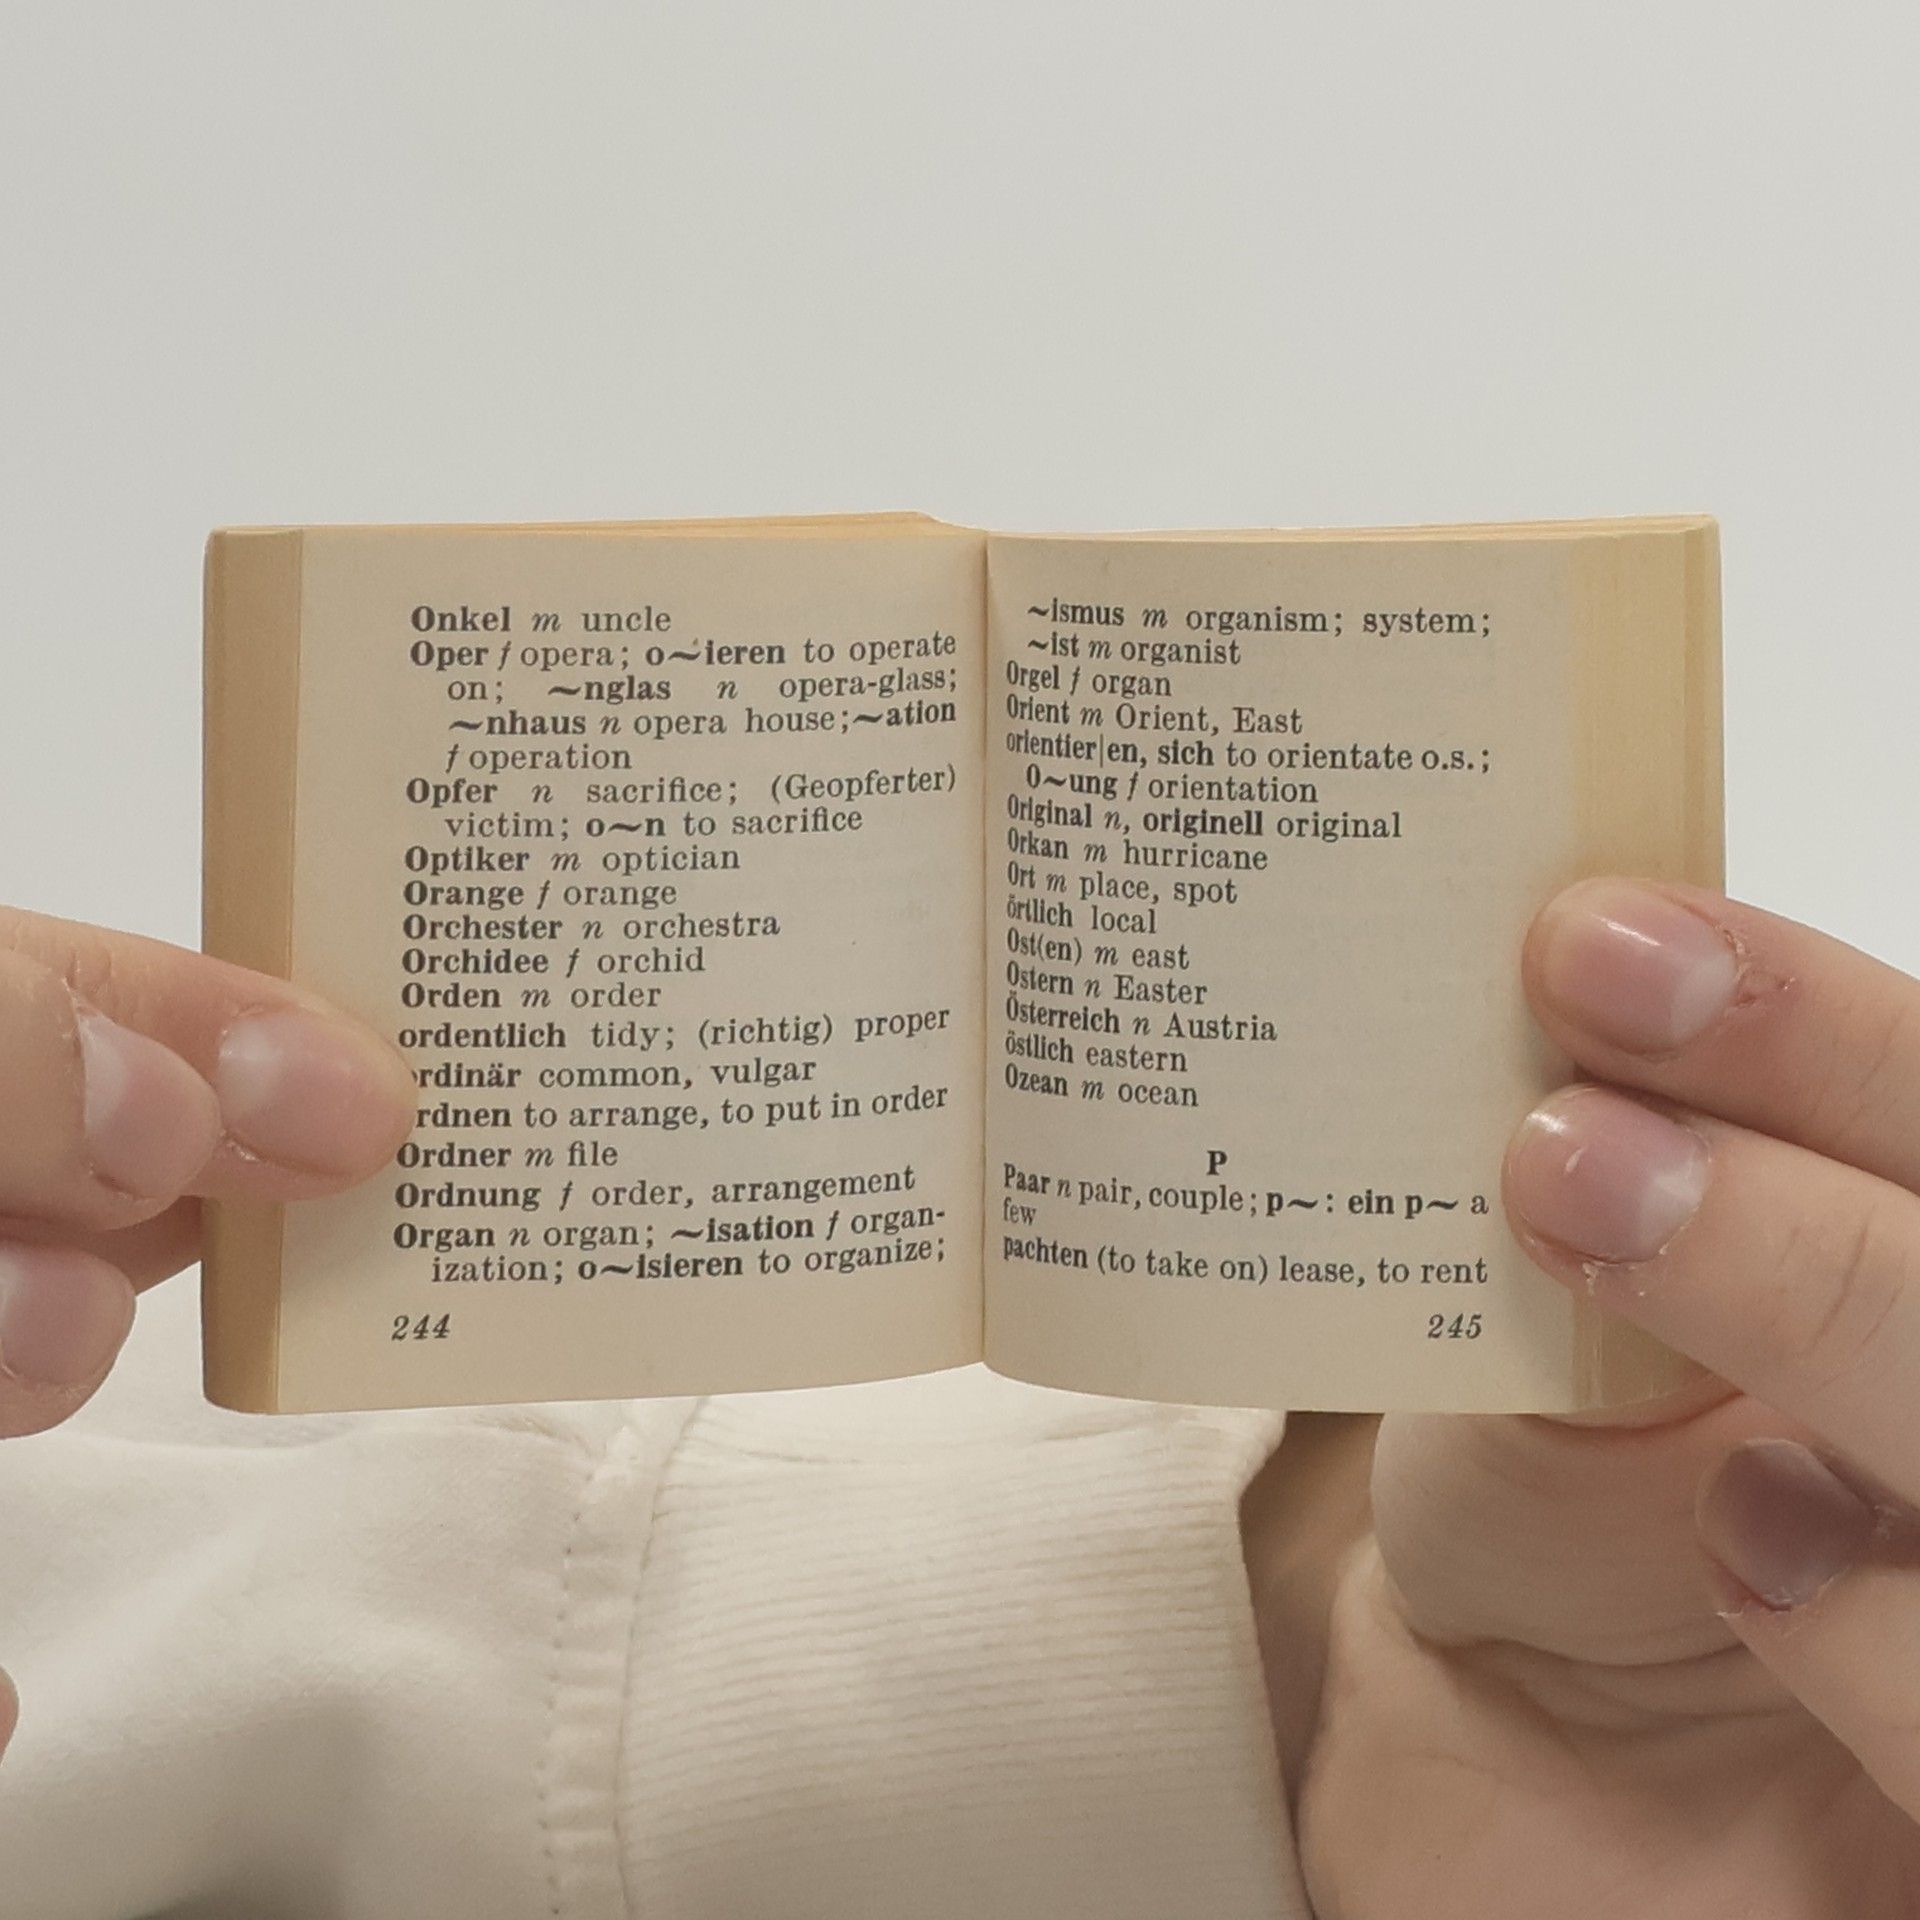 Onkel m uncle
Oper f opera; o~ieren to operate
on; ~nglas n opera-glass;
~nhaus n opera house; ~ation
f operation
Opfer n sacrifice; (Geopferter)
victim; o~n to sacrifice
Optiker m optician
Orange f orange
Orchester n orchestra
Orchidee f orchid
Orden m order
ordentlich tidy; (richtig) proper
rdinär common, vulgar
rdnen to arrange, to put in order
Ordner m file
Ordnung f order, arrangement
Organ n organ; ~isation f organ-
ization; o~isieren to organize;
244
~ismus m organism; system;
~ist m organist
Orgel f organ
Orient m Orient, East
orientier|en, sich to orientate o.s.;
O~ung f orientation
Original n, originell original
Orkan m hurricane
Ort m place, spot
örtlich local
Ost(en) m east
Ostern n Easter
Österreich n Austria
östlich eastern
Ozean m ocean
P
Paar n pair, couple; p~: ein p~ a
few
pachten (to take on) lease, to rent
245